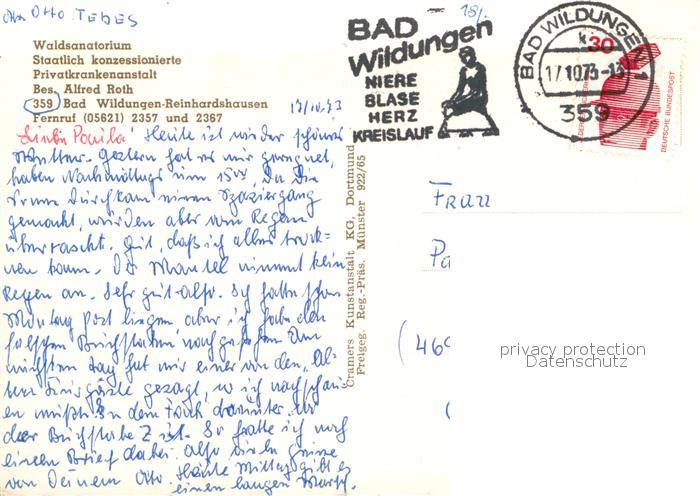 Otto TEBES
18/.
BAD
Wildungen
NIERE
BLASE
HERZ
KREISLAUF
BAD WILDUNGEN 1
17.10.73-13
359
30
DEUTSCHE BUNDESPOST
Waldsanatorium
Staatlich konzessionierte
Privatkrankenanstalt
Bes. Alfred Roth
359 Bad Wildungen-Reinhardshausen
Fernruf (05621) 2357 und 2367
17/10.73
Liebe Paula! Heute ist wieder schönes
Wetter. Gestern hat es nur geregnet,
haben Nachmittags um 15 Uhr
einen Spaziergang
gemacht, wurden aber vom Regen
überrascht. Gut, daß ich alles trock-
nen kann. Der Mantel nimmt kein
Regen an. Sehr gut also. Ich hatte schon
Montag Post liegen, aber ich habe den
falschen Buchstaben nachgesehen. Am
nächsten Tag hat mir einer von den "Al-
ten" Kurgäste gesagt, wo ich nachschau-
en mußte. In dem Fach darunter wo
der Buchstabe Z ist. So hatte ich noch
einen Brief dabei. Also viele Grüsse
von Deinem Otto. Heute Mittag gibt es
einen langen Marsch.
Cramers Kunstanstalt KG. Dortmund
Freigeg. Reg.-Präs. Münster 922/65
FRAU
Pa
(469
privacy protection
Datenschutz